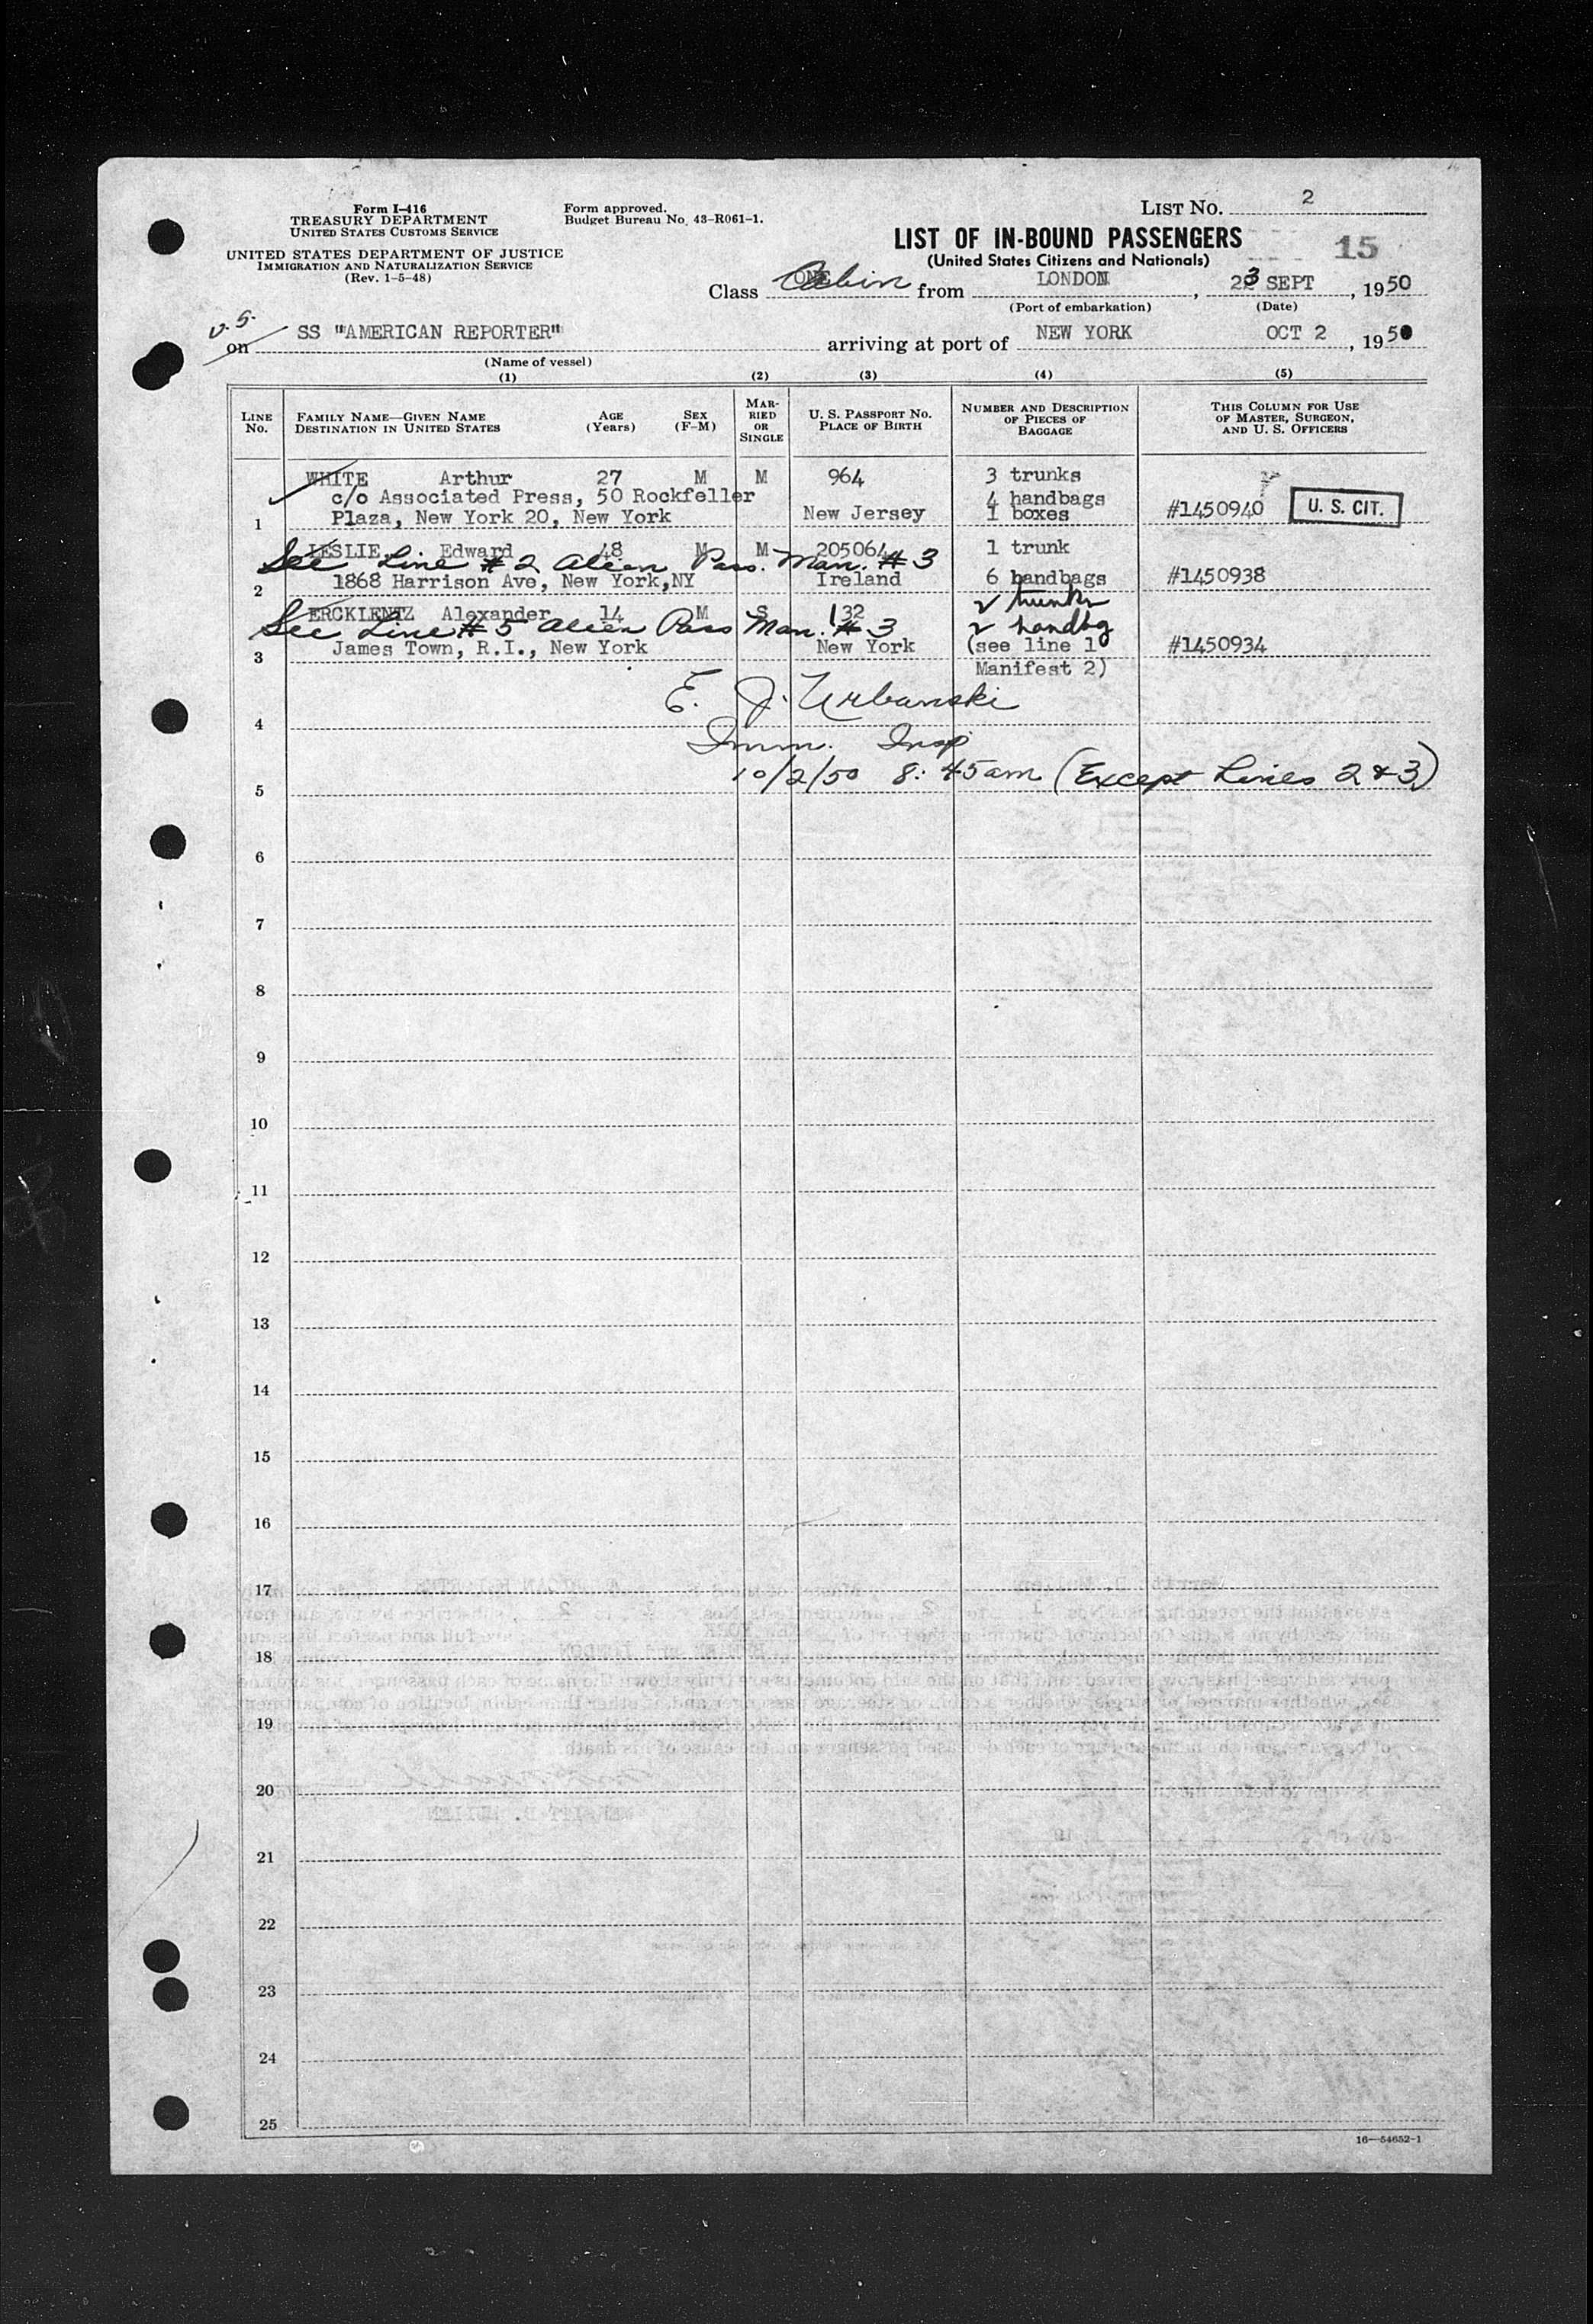 Form I-416
TREASURY DEPARTMENT
UNITED STATES CUSTOMS SERVICE
UNITED STATES DEPARTMENT OF JUSTICE
IMMIGRATION AND NATURALIZATION SERVICE
(Rev. 1-5-48)
Form approved.
Budget Bureau No. 43-R061-1.
LIST NO. 2
LIST OF IN-BOUND PASSENGERS
(United States Citizens and Nationals)
15
Class Cabin from LONDON, 23 SEPT, 1950
(Port of embarkation) (Date)
on SS "AMERICAN REPORTER" arriving at port of NEW YORK OCT 2, 1950
(Name of vessel)
(1) (2) (3) (4) (5)
LINE No.
FAMILY NAME—GIVEN NAME
DESTINATION IN UNITED STATES
AGE (Years)
SEX (F-M)
MARRIED OR SINGLE
U. S. PASSPORT NO.
PLACE OF BIRTH
NUMBER AND DESCRIPTION OF PIECES OF BAGGAGE
THIS COLUMN FOR USE OF MASTER, SURGEON, AND U. S. OFFICERS
WHITE Arthur 27 M M 964 3 trunks
c/o Associated Press, 50 Rockfeller 4 handbags
1 Plaza, New York 20, New York New Jersey 1 boxes #1450940 U. S. CIT.
LESLIE Edward 48 M M 205064 1 trunk
See Line #2 Alien Pass. Man. #3
2 1868 Harrison Ave, New York,NY Ireland 6 handbags #1450938
ERCKLENTZ Alexander 14 M S 132 2 trunks
See Line #5 Alien Pass Man. #3 2 handbg
3 James Town, R.I., New York New York (see line 10 #1450934
Manifest 2)
E. J. Urbanski
4
Imm. Insp
10/2/50 8:45am (Except Lines 2 & 3)
5
6
7
8
9
10
11
12
13
14
15
16
17
18
19
20
21
22
23
24
25
16—54652-1